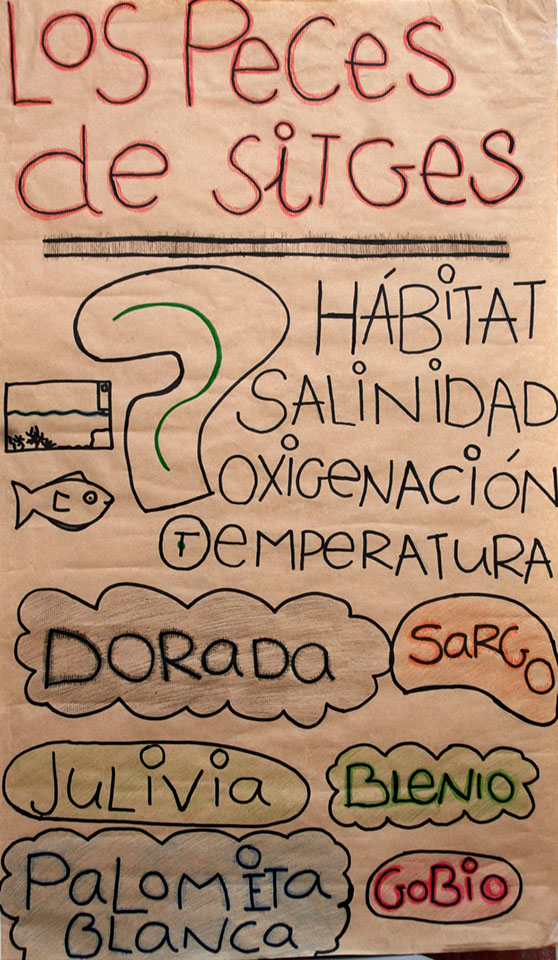 Los Peces
de Sitges
HÁBiTAT
SALiNiDAD
OXiGeNACiÓN
TeMPeRATURA
DORaDa
SaRGo
JuLiVia
BLeNiO
PaLoMiETa
BLaNCa
GoBio